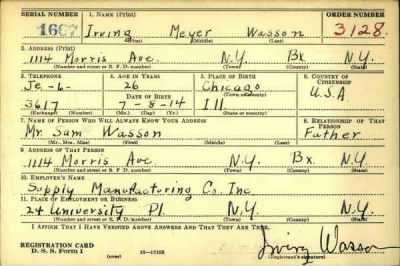 SERIAL NUMBER 1. NAME (Print) ORDER NUMBER
1667 Irving Meyer Wasson 3128
(First) (Middle) (Last)
2. ADDRESS (Print)
1114 Morris Ave. N.Y. Bx. N.Y.
(Number and street or R. F. D. number) (Town) (County) (State)
3. TELEPHONE 4. AGE IN YEARS 5. PLACE OF BIRTH 6. COUNTRY OF CITIZENSHIP
Je-L- 26 Chicago
DATE OF BIRTH (Town or county) U.S.A
3617 7-8-14 Ill
(Exchange) (Number) (Mo.) (Day) (Yr.) (State or country)
7. NAME OF PERSON WHO WILL ALWAYS KNOW YOUR ADDRESS 8. RELATIONSHIP OF THAT PERSON
Mr. Sam Wasson Father
(Mr., Mrs., Miss) (First) (Middle) (Last)
9. ADDRESS OF THAT PERSON
1114 Morris Ave N.Y. Bx. N.Y.
(Number and street or R. F. D. number) (Town) (County) (State)
10. EMPLOYER'S NAME
Supply Manufacturing Co. Inc
11. PLACE OF EMPLOYMENT OR BUSINESS
24 University Pl. N.Y. N.Y.
(Number and street or R. F. D. number) (Town) (County) (State)
I AFFIRM THAT I HAVE VERIFIED ABOVE ANSWERS AND THAT THEY ARE TRUE.
REGISTRATION CARD
D. S. S. Form 1 (over) 16-17105 Irving Wasson
(Registrant's signature)